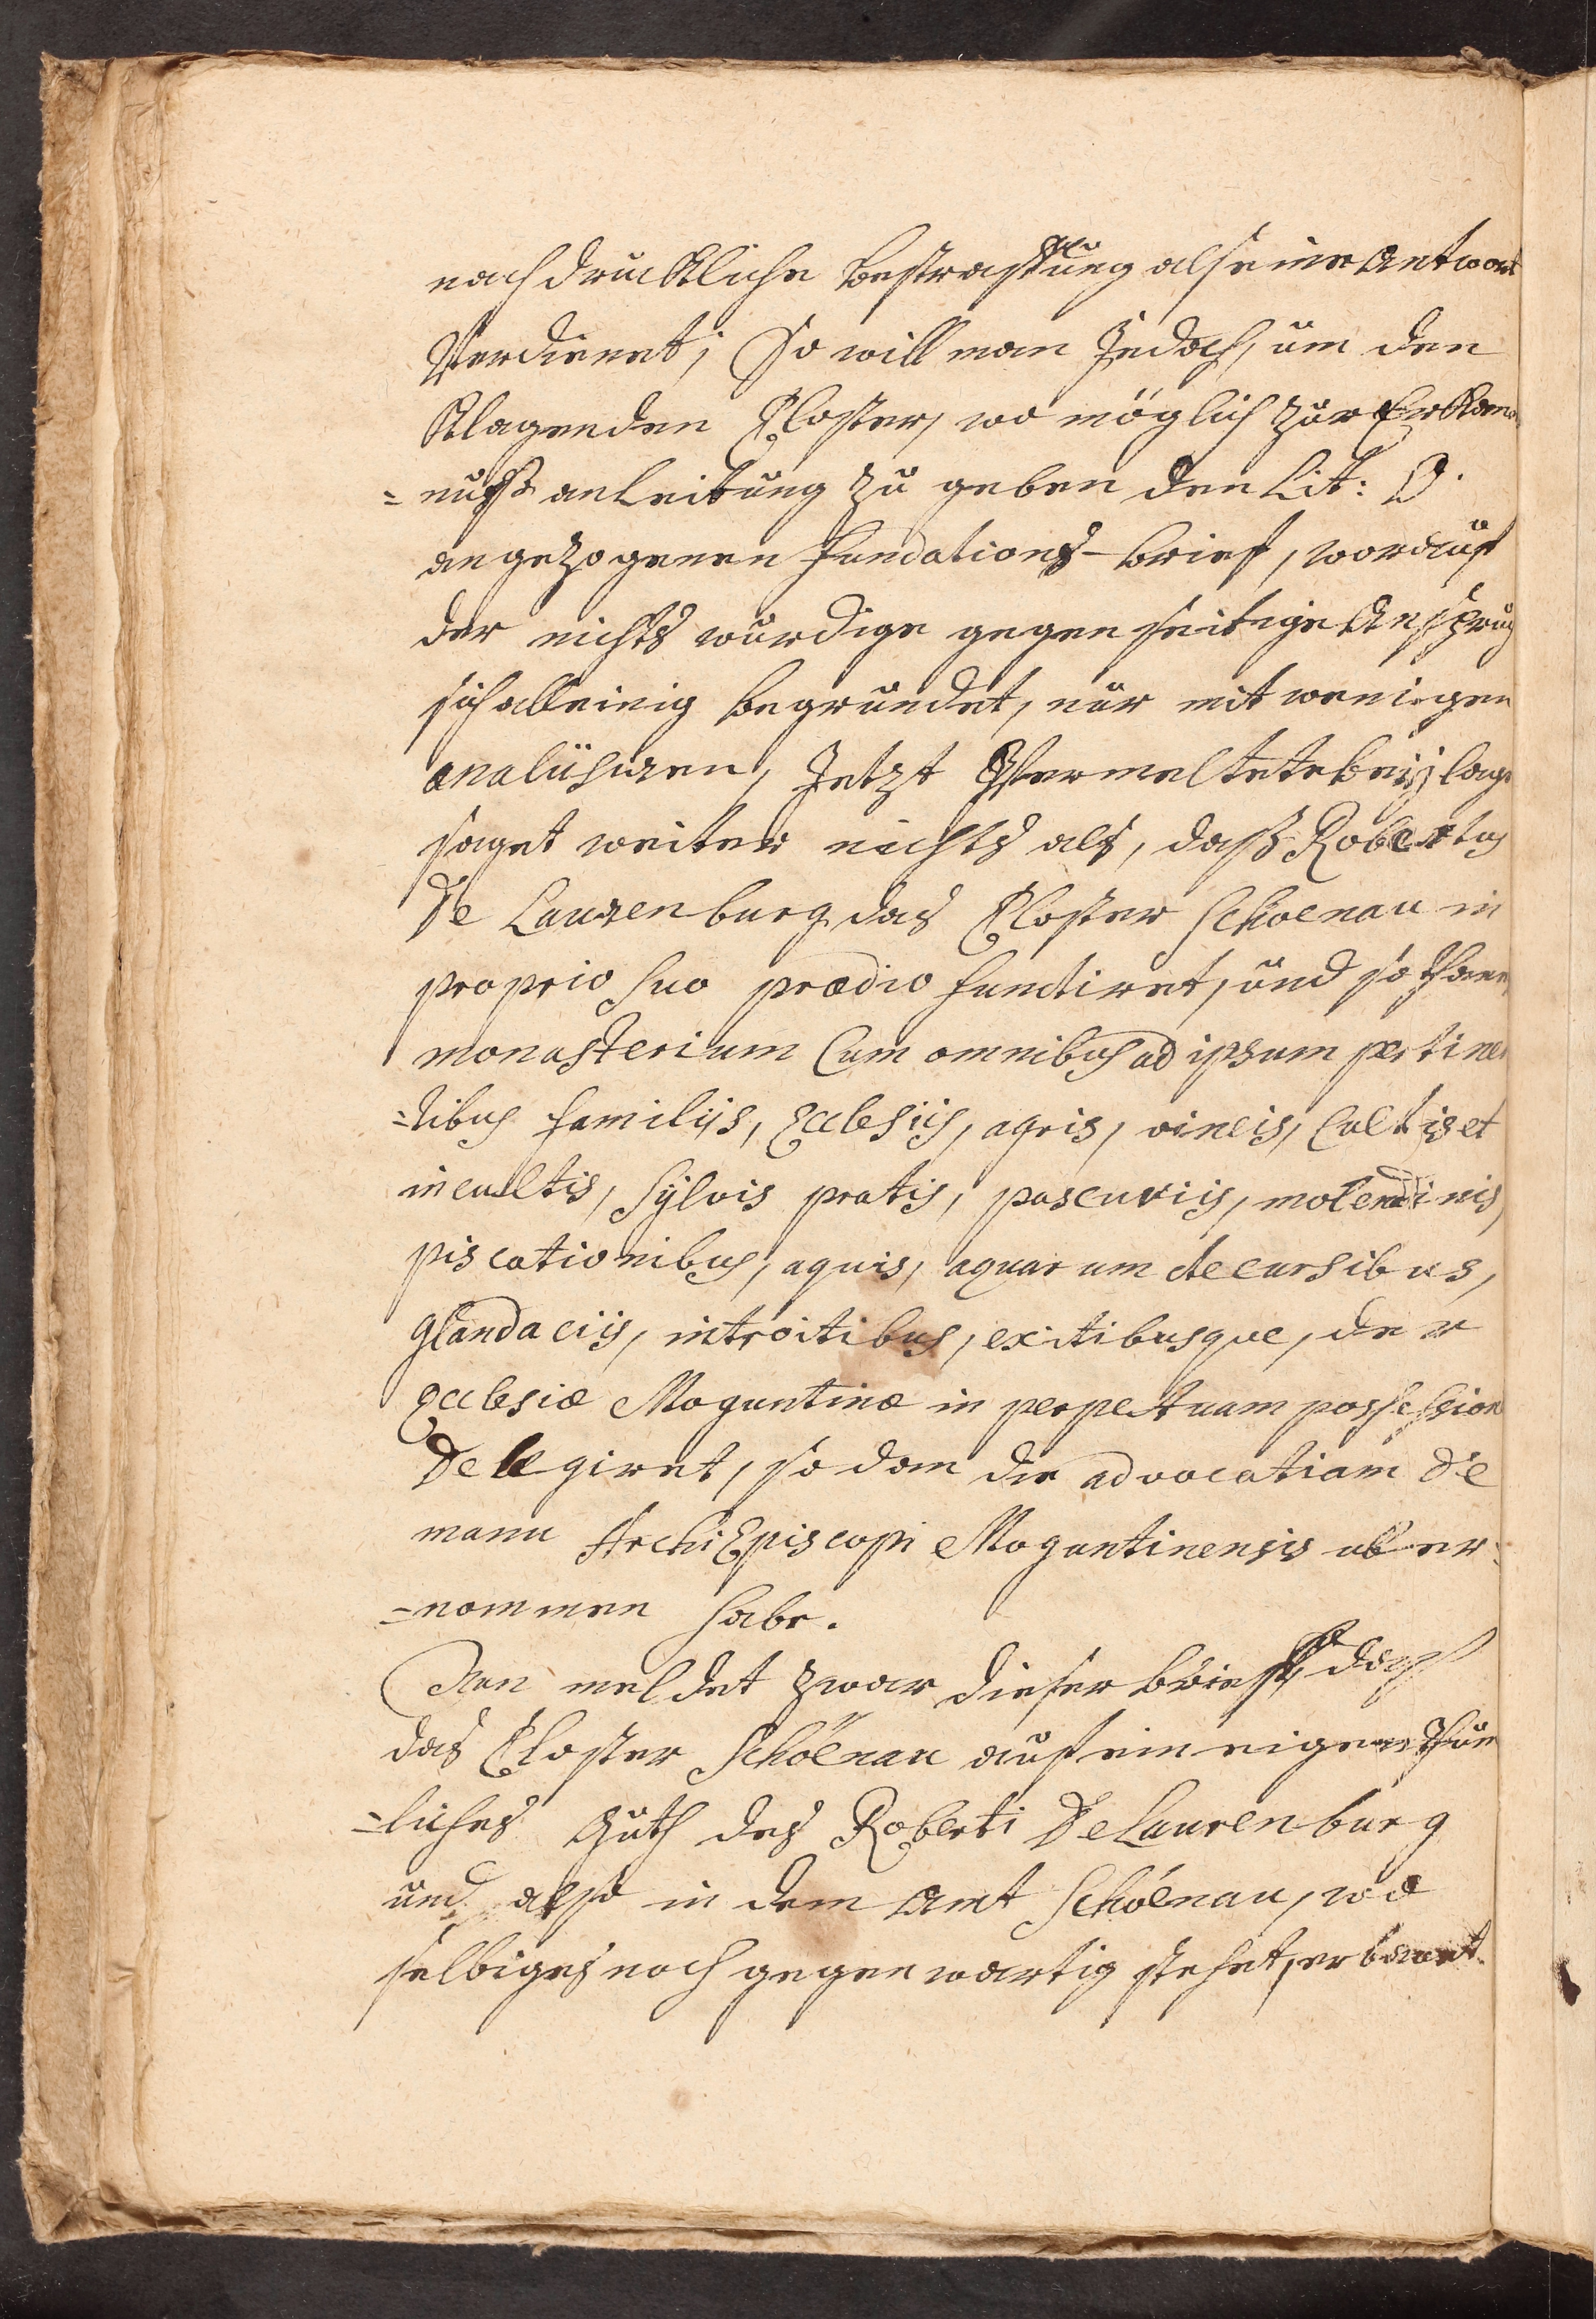 nachdrückliche bestraffung als eine Antwort
Verdienet; So will man Jedoch, um den
Klagenden Closter, wo möglich zur Erkant-
=nuß anleitung zu geben den Lit: O.
angezogenen fundations-brief, worauf
der nichts würdige gegenseitige Anspruch
sich alleinig begründet, nur mit wenigen
analüsiren, Jetzt Ermeltete beÿlag
saget weiter nichts als, daß Robertus
De Laurenburg das Closter Schoenau in
proprio suo prædio fundiret, und sothanes
monasterium Cum omnibus ad ipsum pertinen
=tibus familijs, Ecclesijs, agris, vineis, Cultis et
incultis, Sÿlvis pratis, pascuriis, molendinis,
piscationibus, aquis, aquarum decursibus,
glandaciis, introitibus, exitibusque, der
Ecclesiæ Moguntinæ in perpetuam possession
Delegiret, so dan die advocatiam De
manu ArchiEpiscopi Moguntinensis uber=
=nommen habe.
Nun meldet zwar dieser brieff, daß
das Closter Schoenau auf ein eigenthum
=liches Guth des Roberti De Laurenburg
und also in dem Amt Schoenau, wo
selbiges noch gegenwärtig stehet, erbauet